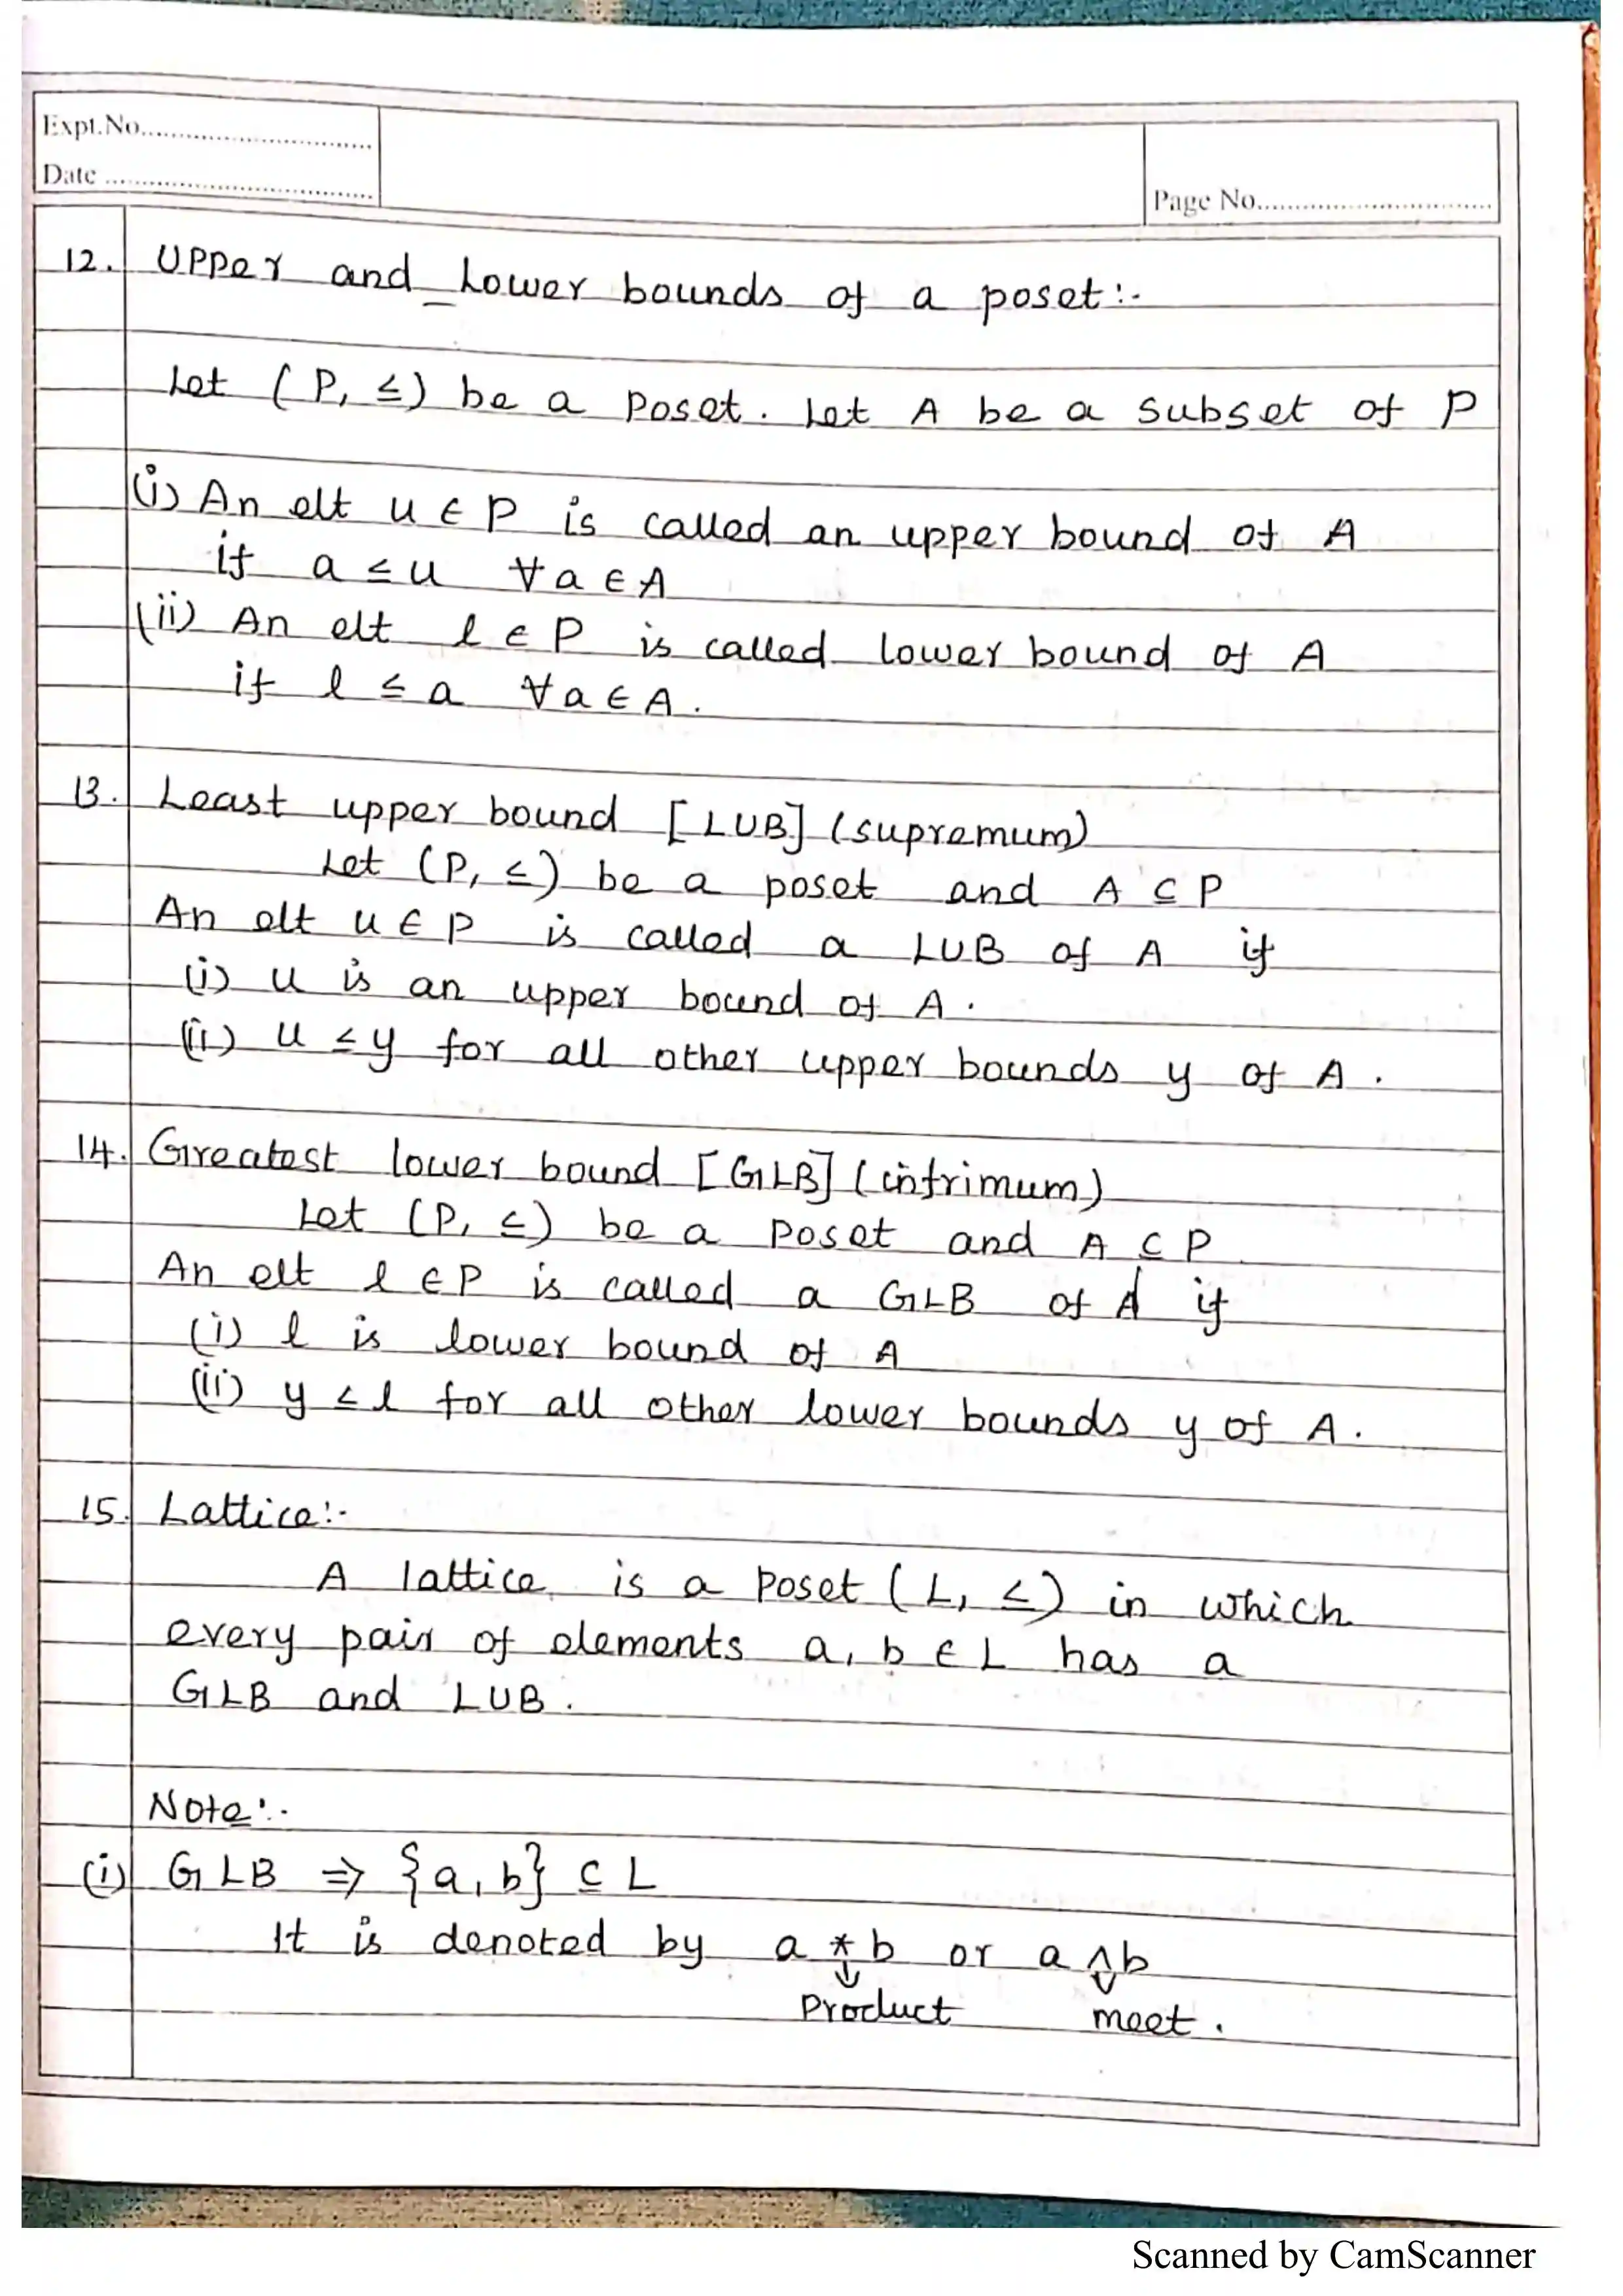 Expt.No.
Date
Page No.
12. Upper and Lower bounds of a poset:-
Let (P, ≤) be a Poset. Let A be a subset of P
(i) An elt u ∈ P is called an upper bound of A
if a ≤ u ∀ a ∈ A
(ii) An elt l ∈ P is called lower bound of A
if l ≤ a ∀ a ∈ A.
13. Least upper bound [LUB] (supremum)
Let (P, ≤) be a poset and A ⊆ P
An elt u ∈ P is called a LUB of A if
(i) u is an upper bound of A.
(ii) u ≤ y for all other upper bounds y of A.
14. Greatest lower bound [GLB] (infrimum)
Let (P, ≤) be a Poset and A ⊆ P
An elt l ∈ P is called a GLB of A if
(i) l is lower bound of A
(ii) y ≤ l for all other lower bounds y of A.
15. Lattice:-
A lattice is a Poset (L, ≤) in which
every pair of elements a, b ∈ L has a
GLB and LUB.
Note:-
(i) GLB ⇒ {a, b} ⊆ L
It is denoted by a * b or a ∧ b
↓ ↓
Product meet.
Scanned by CamScanner